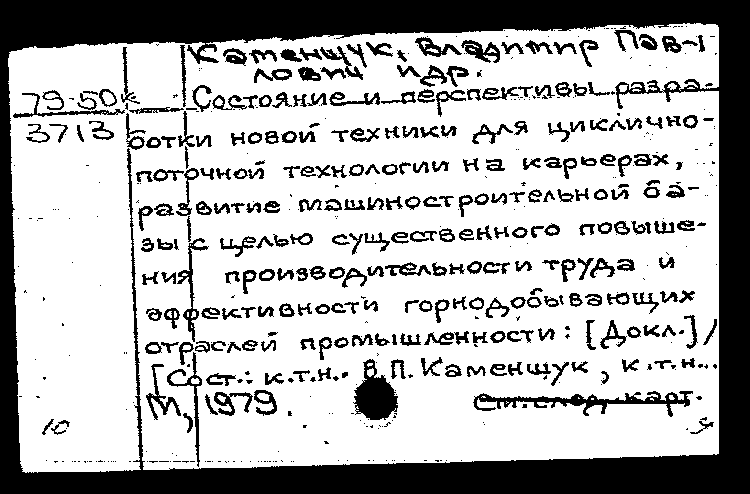 Каменщук, Владимир Пав-
лович и др.
79-50к Состояние и перспективы разра-
3713 ботки новой техники для циклично-
поточной технологии на карьерах,
развитие машиностроительной ба-
зы с целью существенного повыше-
ния производительности труда и
эффективности горнодобывающих
отраслей промышленности: [Докл.]/
[Сост.: к.т.н.. В.П. Каменщук, к.т.н...
М, 1979. см.след. карт.
10